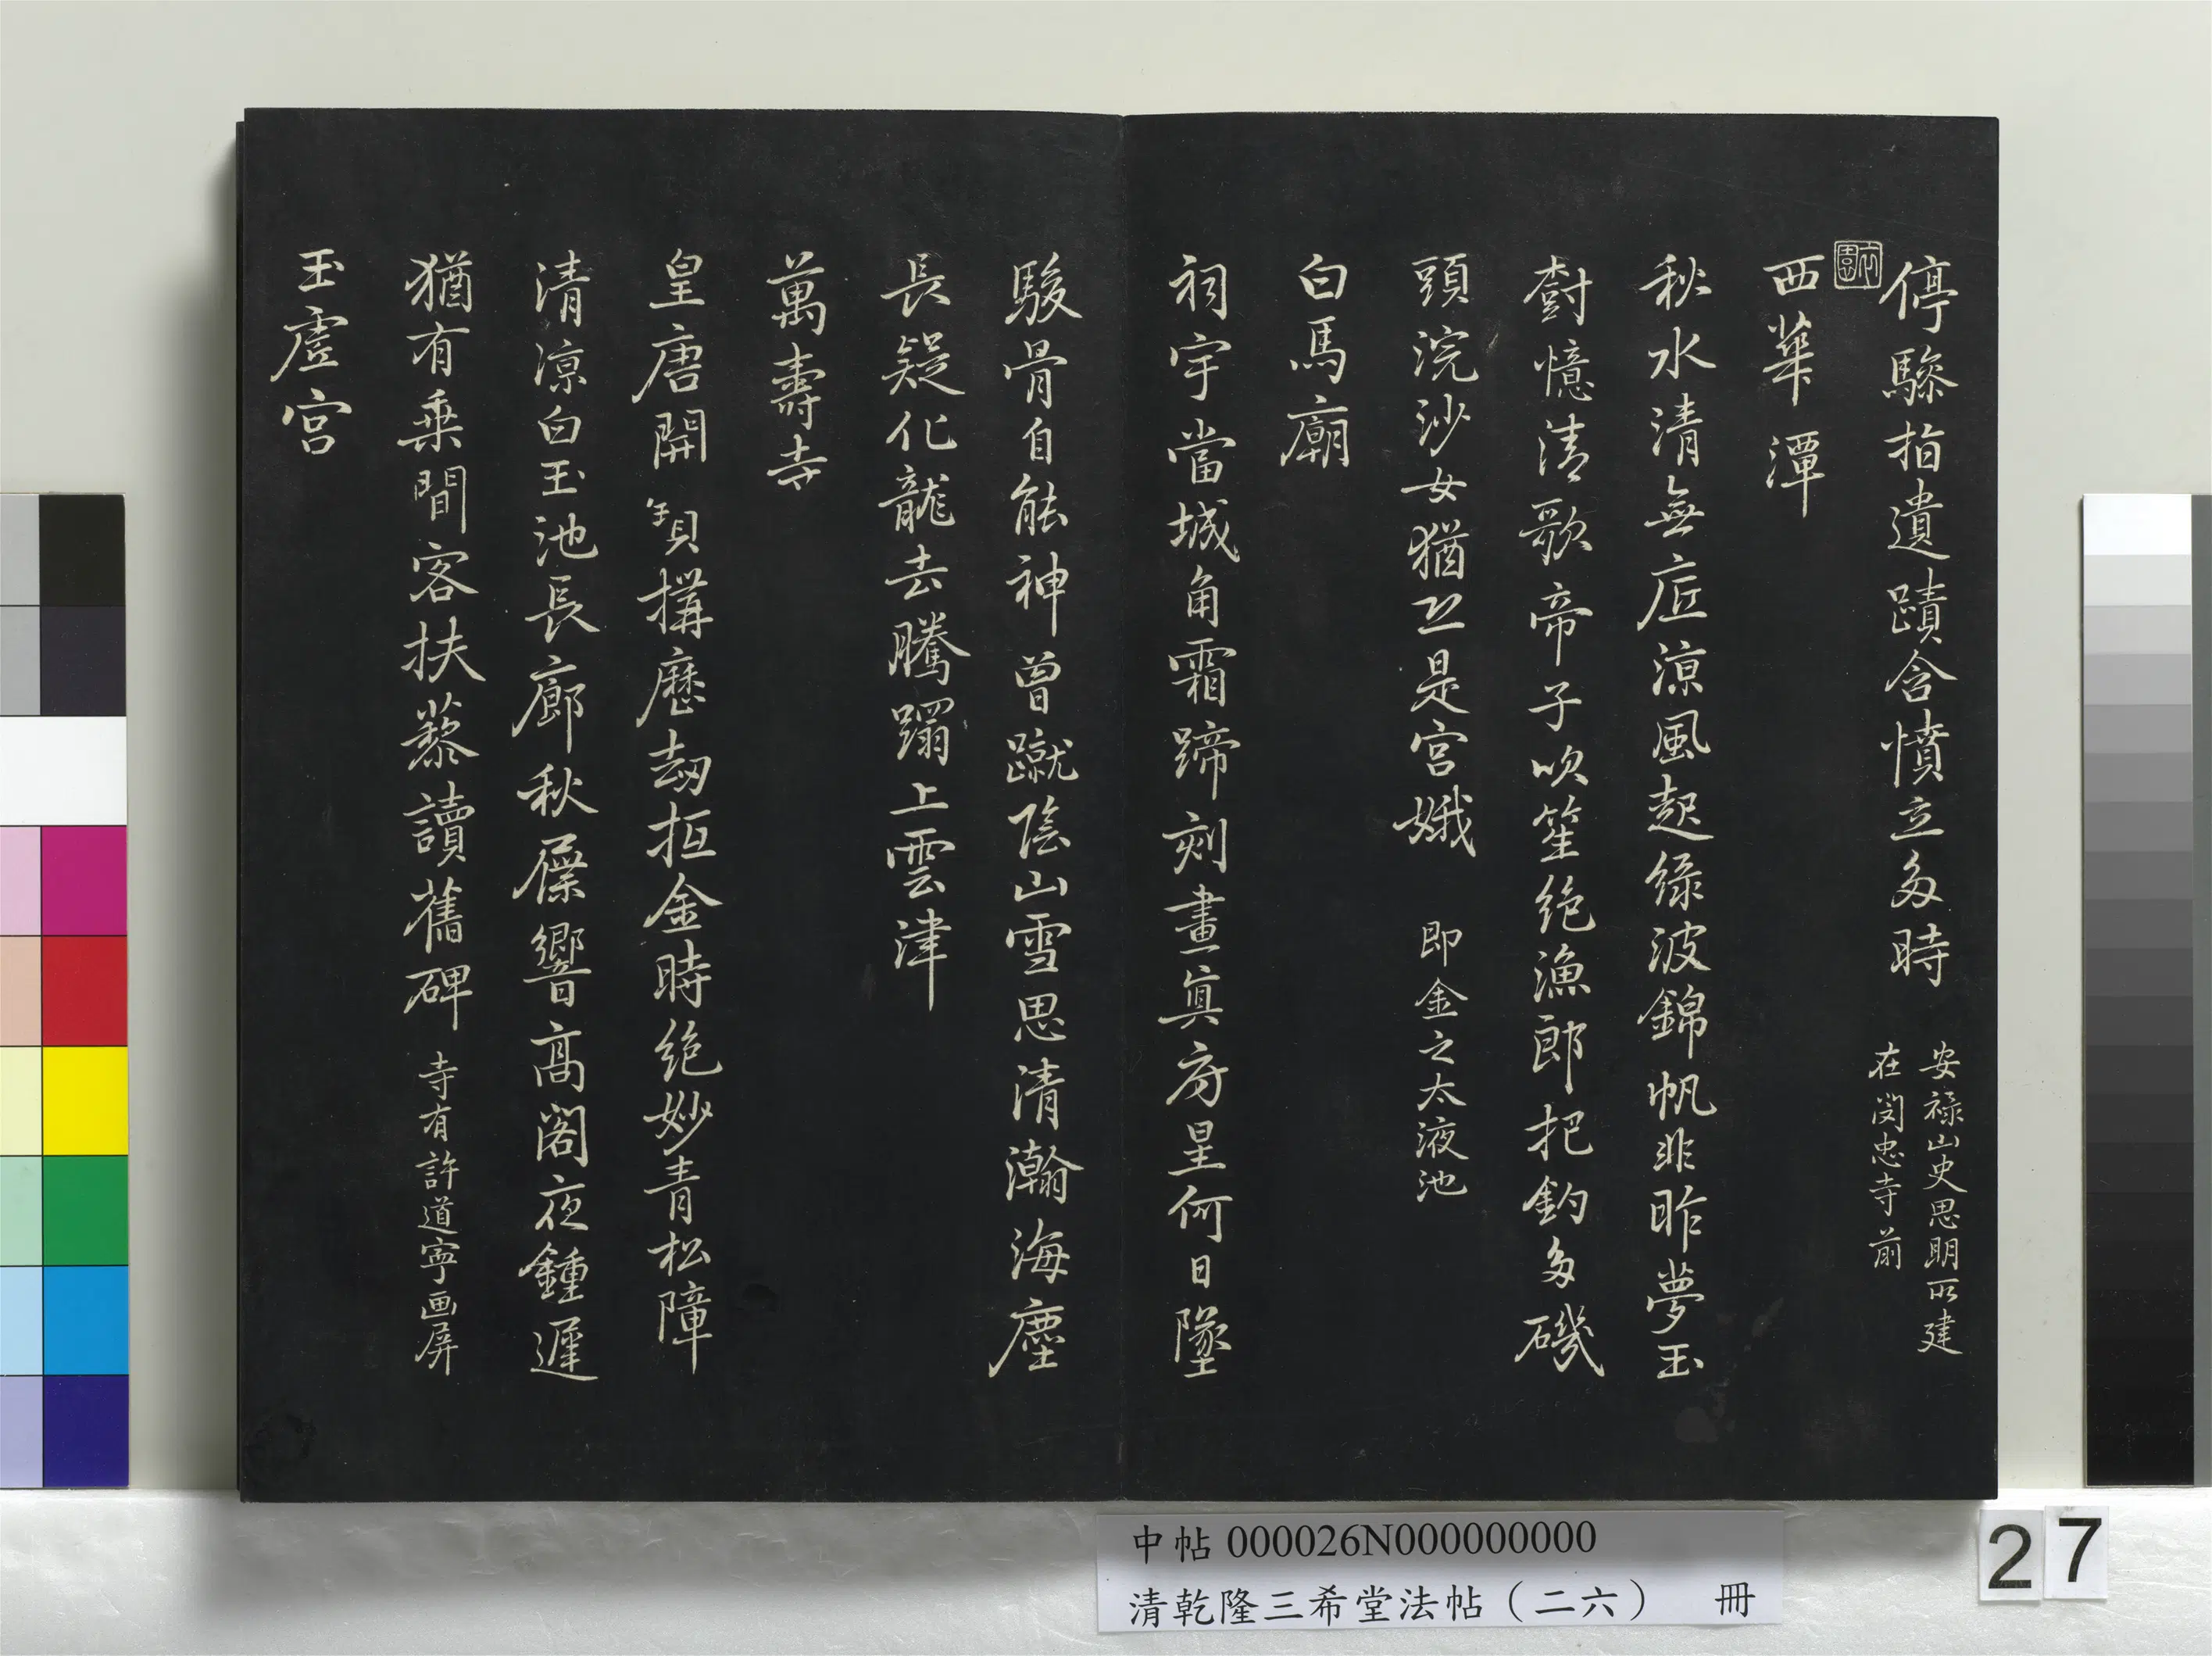 停驂指遺蹟含憤立多時
安祿山史思明所建
在閔忠寺前
西華潭
秋水清無底涼風起綠波錦帆非昨夢玉
樹憶清歌帝子吹笙絶漁郎把釣多磯
頭浣沙女猶恐是宮娥
即金之太液池
白馬廟
祠宇當城角霜蹄刻畫真房星何日墜
駿骨自能神曾蹴陰山雪思清瀚海塵
長疑化龍去騰躡上雲津
萬壽寺
皇唐開寶構歷劫抵金時絶妙青松障
清涼白玉池長廊秋屧響高閣夜鍾遲
猶有乘閒客扶藜讀舊碑
寺有許道寧画屏
玉虛宮
中帖 000026N000000000
清乾隆三希堂法帖（二六） 冊
27